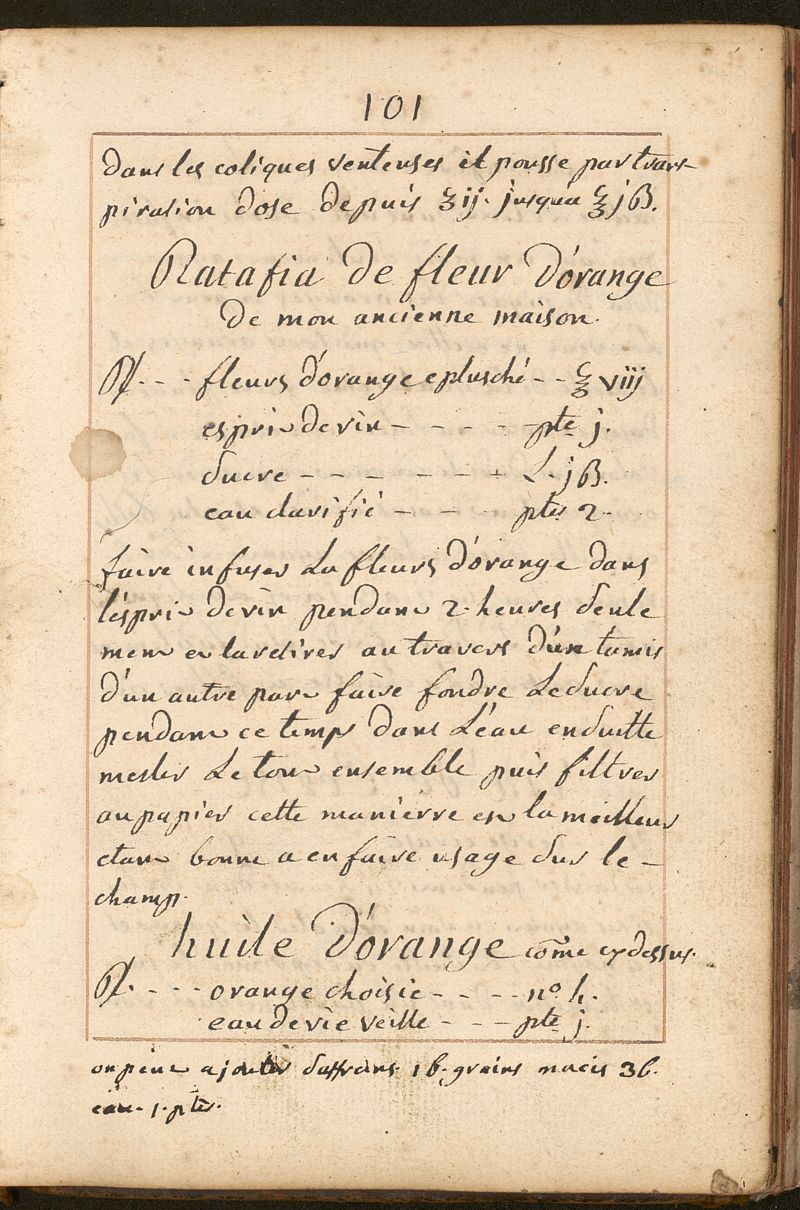 101
dans les coliques venteuses et pousse par trans-
piration dose depuis ℥ij. jusqua ℥jß.
Ratafia de fleur d'orange
de mon ancienne maison.
℞. - - fleurs d'orange epluché - - ℥ viij
esprit de vin - - - - - pte j.
sucre - - - - - - - L. jß.
eau clarifié - - - - ptes 2.
faire infuser La fleurs d'orange dans
l'esprit de vin pendant 2. heures seule
ment et la retirer au travers d'un tamis
d'un autre part faire fondre Le sucre
pendant ce temps dans L'eau ensuitte
mesler Le tout ensemble puis filtrer
au papier cette manierre est la meilleur
etant bonne a en faire usage sur le -
champ.
huile d'orange come cy dessus.
℞. - - - orange choisie - - - - no. 4.
eau de vie veille - - - pte j.
on peut ajouter saffrans 16. grains macis 36.
eau 1. pte.